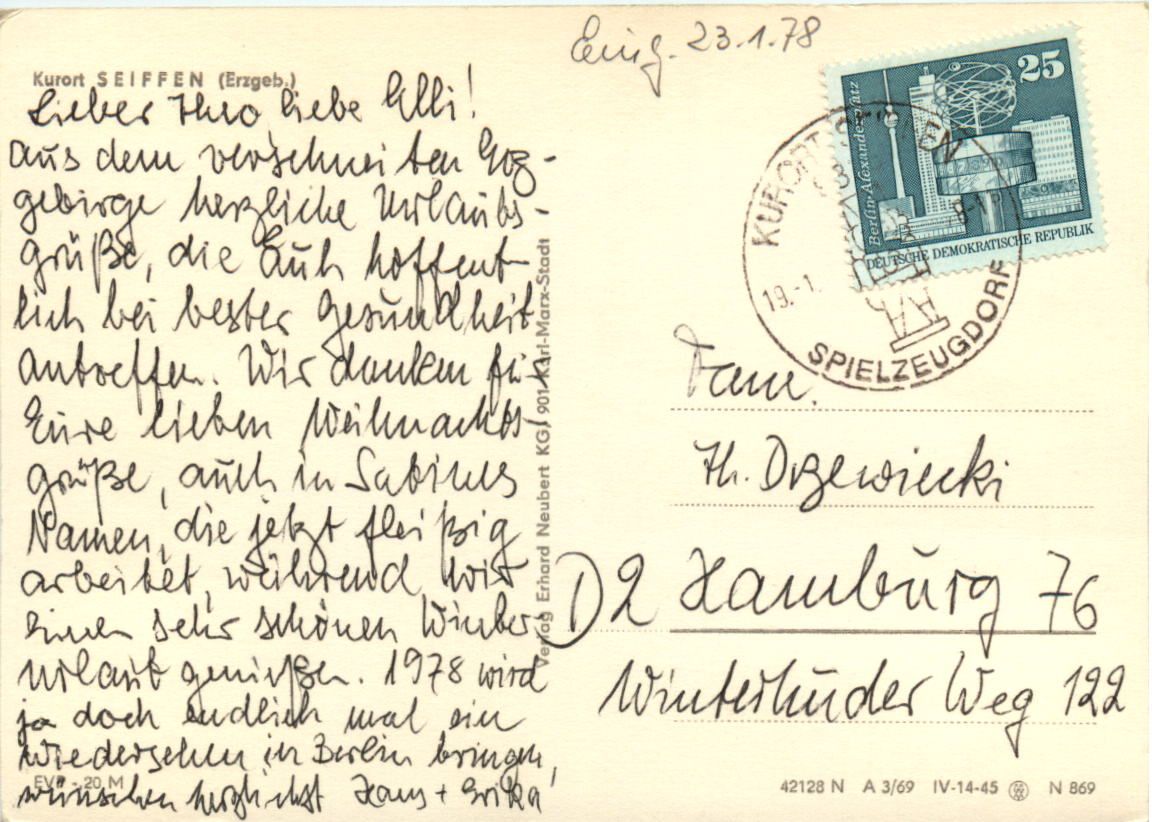 Eing. 23.1.78
Kurort SEIFFEN (Erzgeb.)
Lieber Theo liebe Elli!
Aus dem verschneiten Erz-
gebirge herzliche Urlaubs-
grüße, die Euch hoffent-
lich bei bester Gesundheit
antreffen. Wir danken für
Eure lieben Weihnachts-
grüße, auch in Sabines
Namen, die jetzt fleißig
arbeitet, während wir
einen sehr schönen Winter-
urlaub genießen. 1978 wird
ja doch endlich mal ein
Wiedersehen in Berlin bringen,
wünschen herzlichst Hans + Erika
EVP -.20 M
Verlag Erhard Neubert KG, 901 Karl-Marx-Stadt
25
Berlin-Alexanderplatz
DEUTSCHE DEMOKRATISCHE REPUBLIK
KURORT SEIFFEN
19.-1.
SPIELZEUGDORF
Fam.
Th. Drzewiecki
D2 Hamburg 76
Winterhuder Weg 122
42128 N A 3/69 IV-14-45 N 869